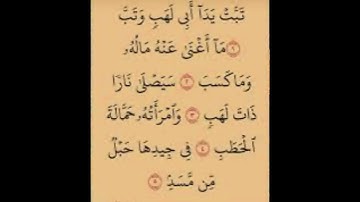 تَبَّتْ يَدَآ أَبِى لَهَبٍ وَتَبَّ
١ مَآ أَغْنَىٰ عَنْهُ مَالُهُۥ
وَمَا كَسَبَ ٢ سَيَصْلَىٰ نَارًا
ذَاتَ لَهَبٍ ٣ وَٱمْرَأَتُهُۥ حَمَّالَةَ
ٱلْحَطَبِ ٤ فِى جِيدِهَا حَبْلٌ
مِّن مَّسَدٍۭ ٥